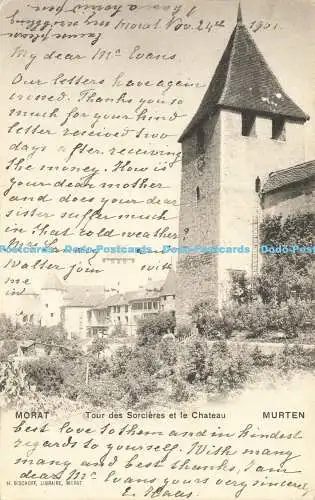 I have a horrid
scribbling pen
Excuse my
Morat Nov. 24th 1901.
My dear Mr Evans.
Our letters have again
crossed. Thanks you so
much for your kind
letter received two
days after receiving
the money. How is
your dear mother
and does your dear
sister suffer much
in that cold weather
Walter join with
me in
Dado-Postcards.com Dado-Postcards.com Dado-Postcards.com
MORAT Tour des Sorcières et le Chateau MURTEN
best love to them and in kindest
regards to yourself. With many
many and best thanks, I am
dear Mr Evans yours very sincerely
H. BISCHOFF, LIBRAIRE, MORAT
E. Haas